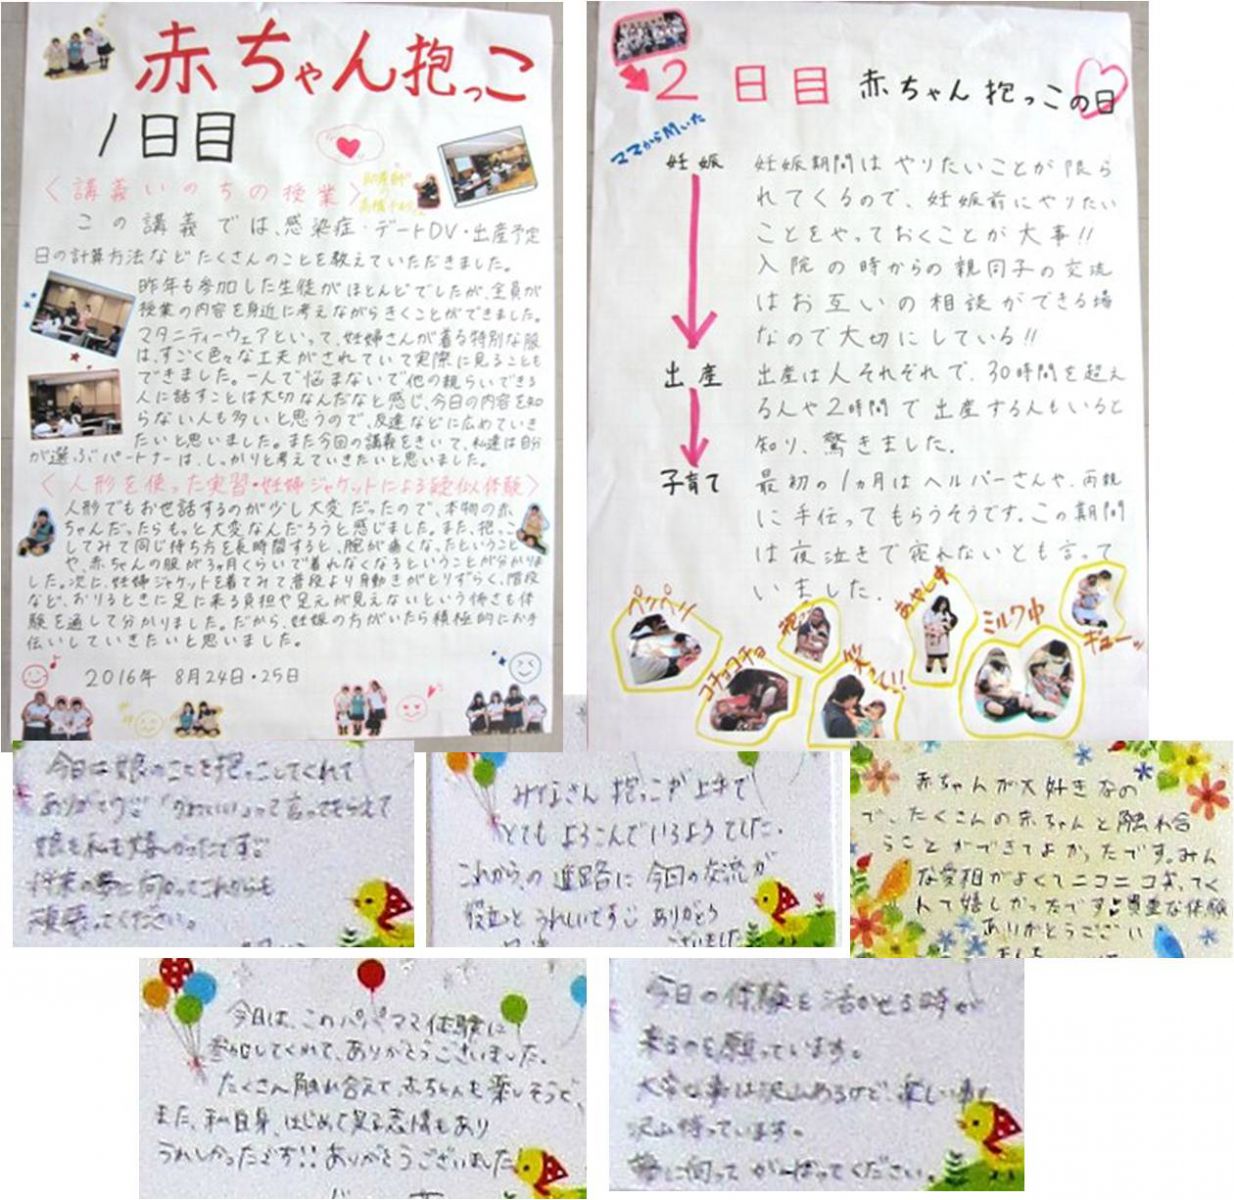 赤ちゃん抱っこ
1日目
〈講義いのちの授業〉
この講義では、感染症・デートDV・出産予定
日の計算方法などたくさんのことを教えていただきました。
昨年も参加した生徒がほとんどでしたが、全員が
授業の内容を身近に考えながらきくことができました。
マタニティーウェアといって、妊婦さんが着る特別な服
は、すごく色々な工夫がされていて実際に見ることも
できました。一人で悩まないで他の親らいできる
人に話すことは大切なんだなと感じ、今日の内容を知
らない人も多いと思うので、友達などに広めていき
たいと思いました。また今回の講義をきいて、私達は自分
が選ぶパートナーは、しっかりと考えていきたいと思いました。
〈人形を使った実習・妊婦ジャケットによる疑似体験〉
人形でもお世話するのが少し大変だったので、本物の赤
ちゃんだったらもっと大変なんだろうと感じました。また、抱っこ
してみて同じ持ち方を長時間すると、腕が痛くなったということ
や、赤ちゃんの服が3ヶ月くらいで着れなくなるということが分かりま
した。次に、妊婦ジャケットを着てみて普段より身動きがとりずらく、階段
など、おりるときに足に来る負担や足元が見えないという怖さも体
験を通して分かりました。だから、妊婦の方がいたら積極的にお手
伝いしていきたいと思いました。
2016年 8月24日・25日
2日目 赤ちゃん抱っこの日
ママから聞いた
妊娠
妊娠期間はやりたいことが限ら
れてくるので、妊娠前にやりたい
ことをやっておくことが大事!!
入院の時からの親同子の交流
はお互いの相談ができる場
なので大切にしている!!
出産
出産は人それぞれで、30時間を超え
る人や2時間で出産する人もいると
知り、驚きました。
子育て
最初の1ヵ月はヘルパーさんや、両親
に手伝ってもらうそうです。この期間
は夜泣きで寝れないとも言って
いました。
あやし中
ミルク中
ギューッ
コチョコチョ
笑って!!
今日は娘のことを抱っこしてくれて
ありがとう って言ってもらえて
娘も私も嬉しかったです
将来の夢に向かってこれからも
頑張ってください。
みなさん抱っこが上手で
とてもよろこんでいるようでした。
これからの進路に今回の交流が
役立つとうれしいです ありがとう
ございました
赤ちゃんが大好きなの
で、たくさんの赤ちゃんと触れ合
うことができてよかったです。みん
な愛想がよくてニコニコ してく
れて嬉しかったです 貴重な体験
ありがとうござい
ました
今日は、このパパママ体験に
参加してくれて、ありがとうございました。
たくさん触れ合えて、赤ちゃんも楽しそうで、
また、私自身、はじめて見る表情もあり
うれしかったです!!ありがとうございました!
今日の体験を活かせる時が
来るのを願っています。
大変な事は沢山あるけど、楽しい事も
沢山待っています。
夢に向ってがんばってください。